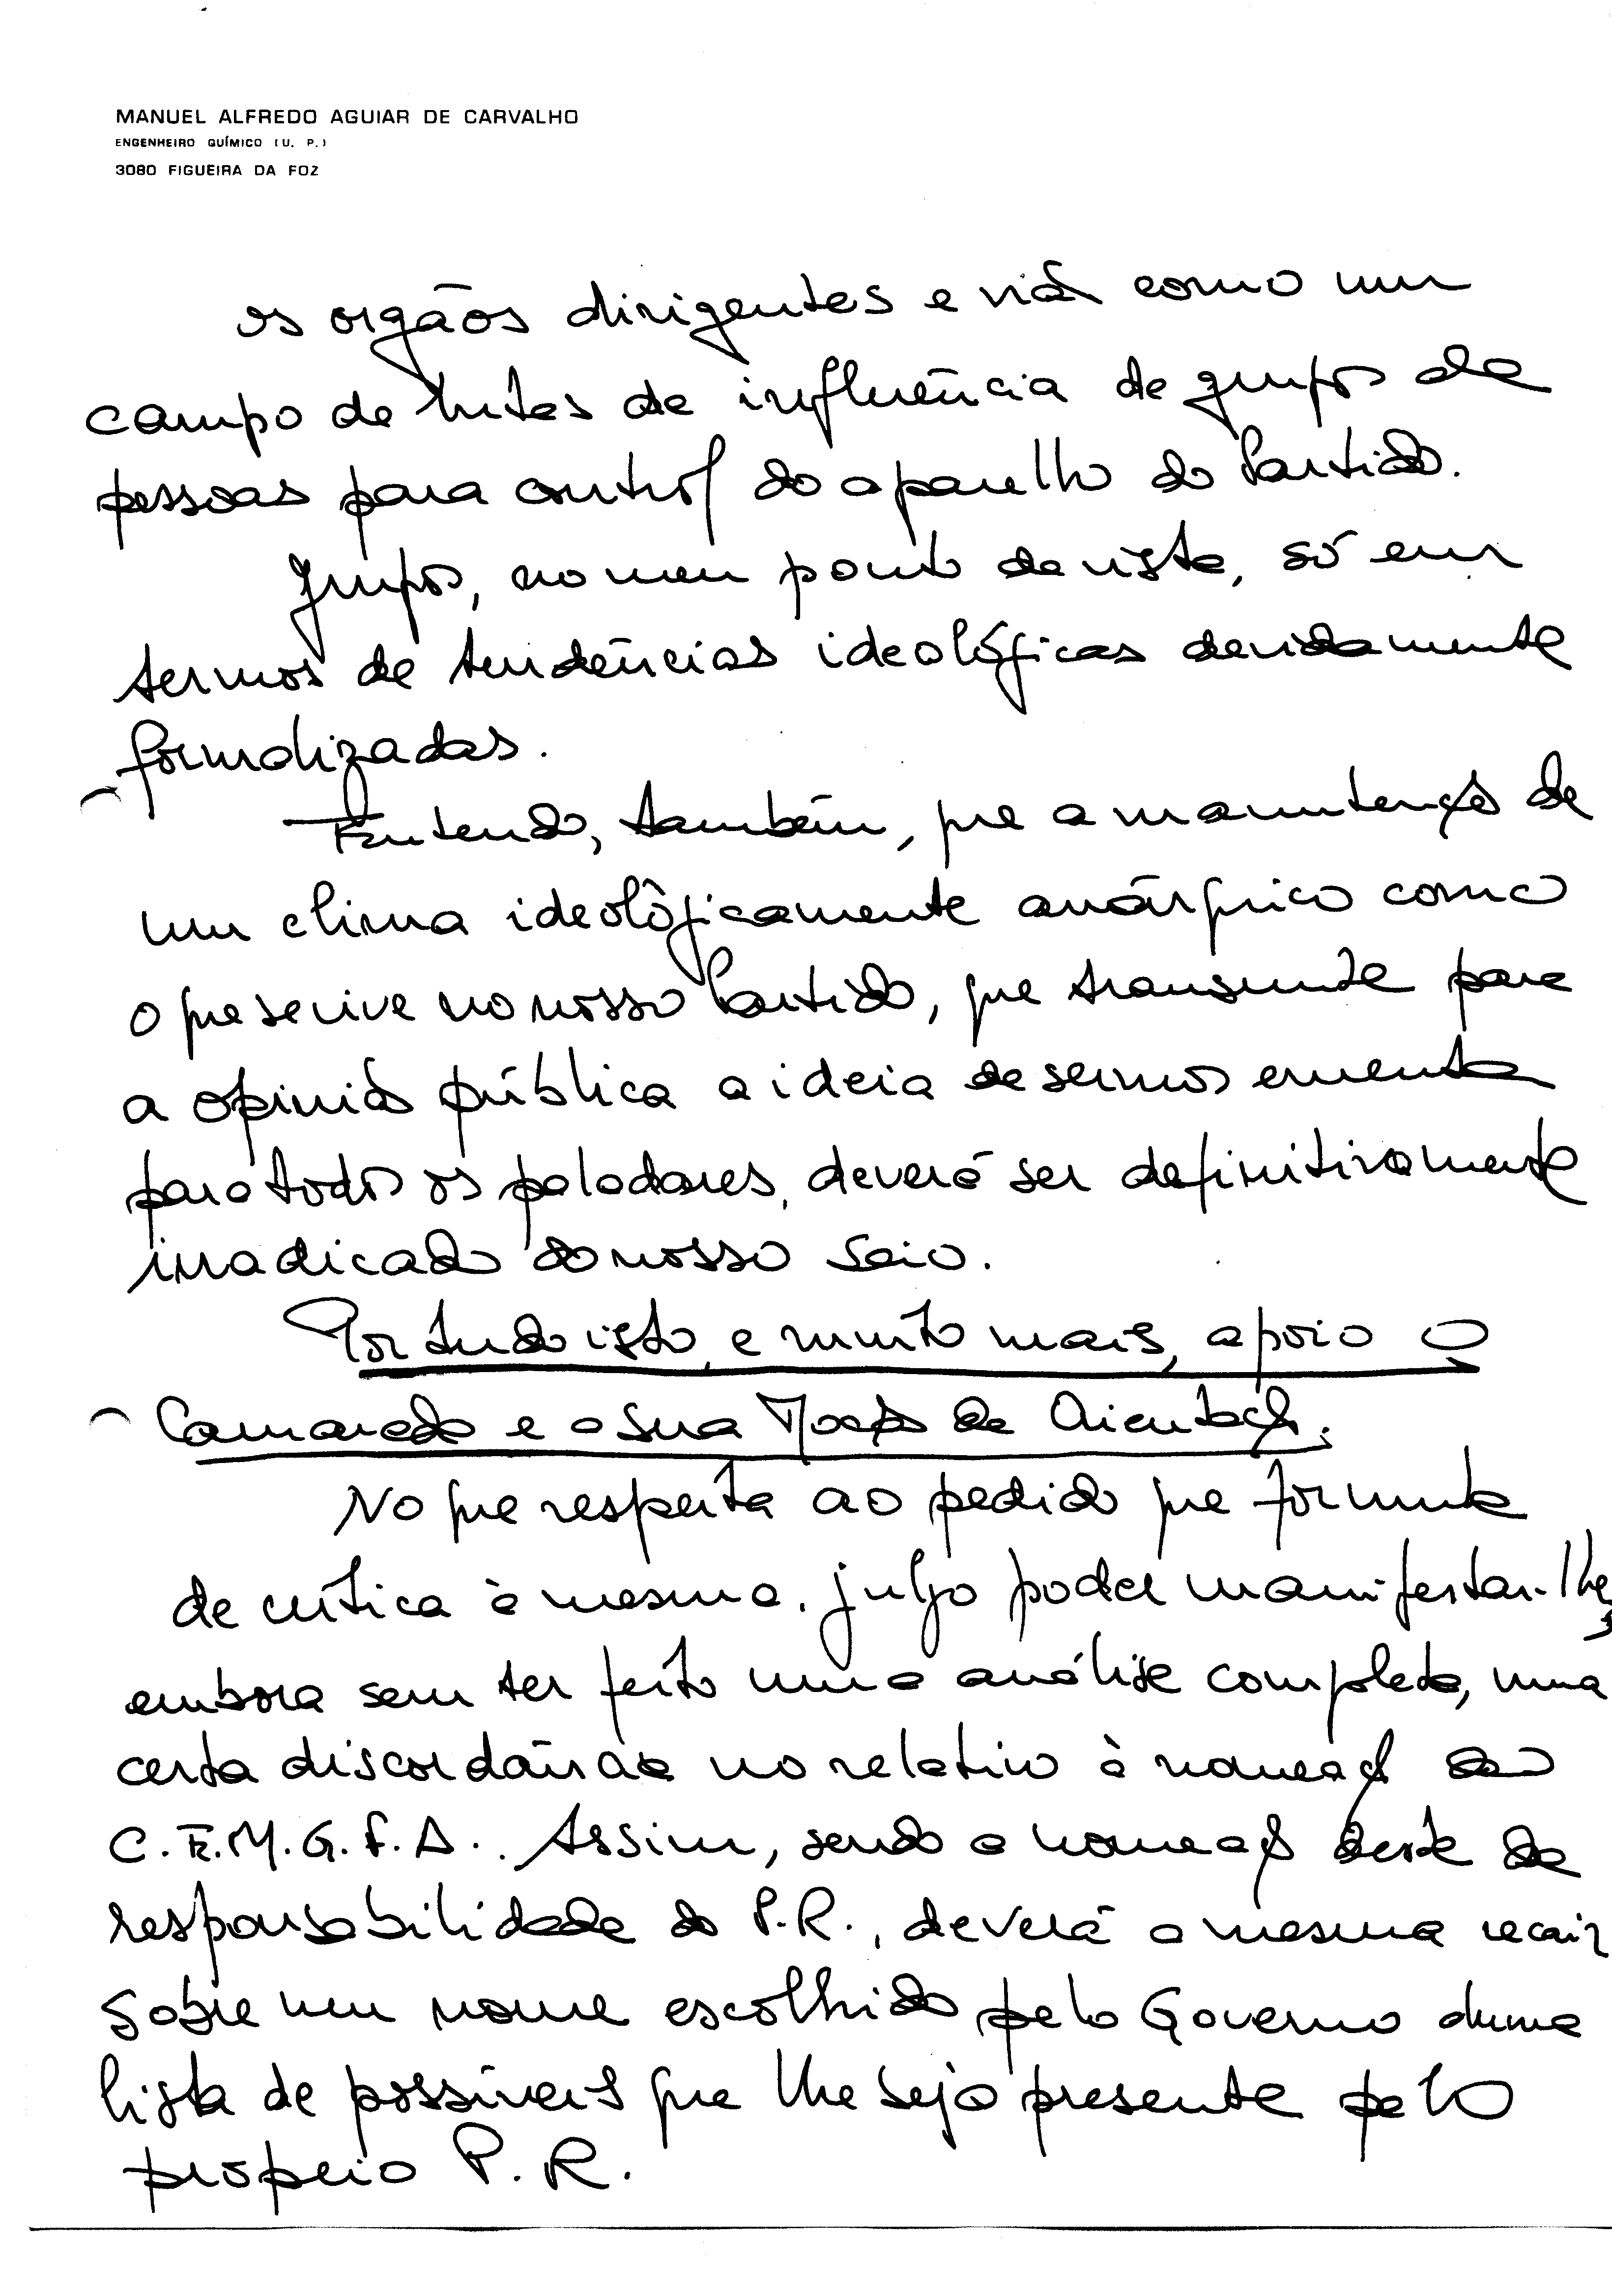 MANUEL ALFREDO AGUIAR DE CARVALHO
ENGENHEIRO QUÍMICO (U. P.)
3080 FIGUEIRA DA FOZ
os orgãos dirigentes e não como um
campo de lutas de influência de grupos de
pessoas para control do aparelho do Partido.
Grupos, no meu ponto de vista, só em
termos de tendências ideológicas devidamente
formalizadas.
Entendo, também, que a manutenção de
um clima ideolôgicamente anárquico como
o que se vive no nosso Partido, que transmite para
a opinião pública a ideia de sermos ementa
para todos os paladares, deverá ser definitivamente
irradicado do nosso seio.
Por tudo isto, e muito mais, apoio o
Camarada e a sua Moção de Orientação.
No que respeita ao pedido que formula
de crítica à mesma, julgo poder manifestar-lhe,
embora sem ter feito uma análise completa, uma
certa discordância no relativo à nomeação do
C.E.M.G.F.A.. Assim, sendo a nomeação deste da
responsabilidade do P.R., deverá a mesma recair
sobre um nome escolhido pelo Governo duma
lista de possíveis que lhe seja presente pelo
próprio P.R.